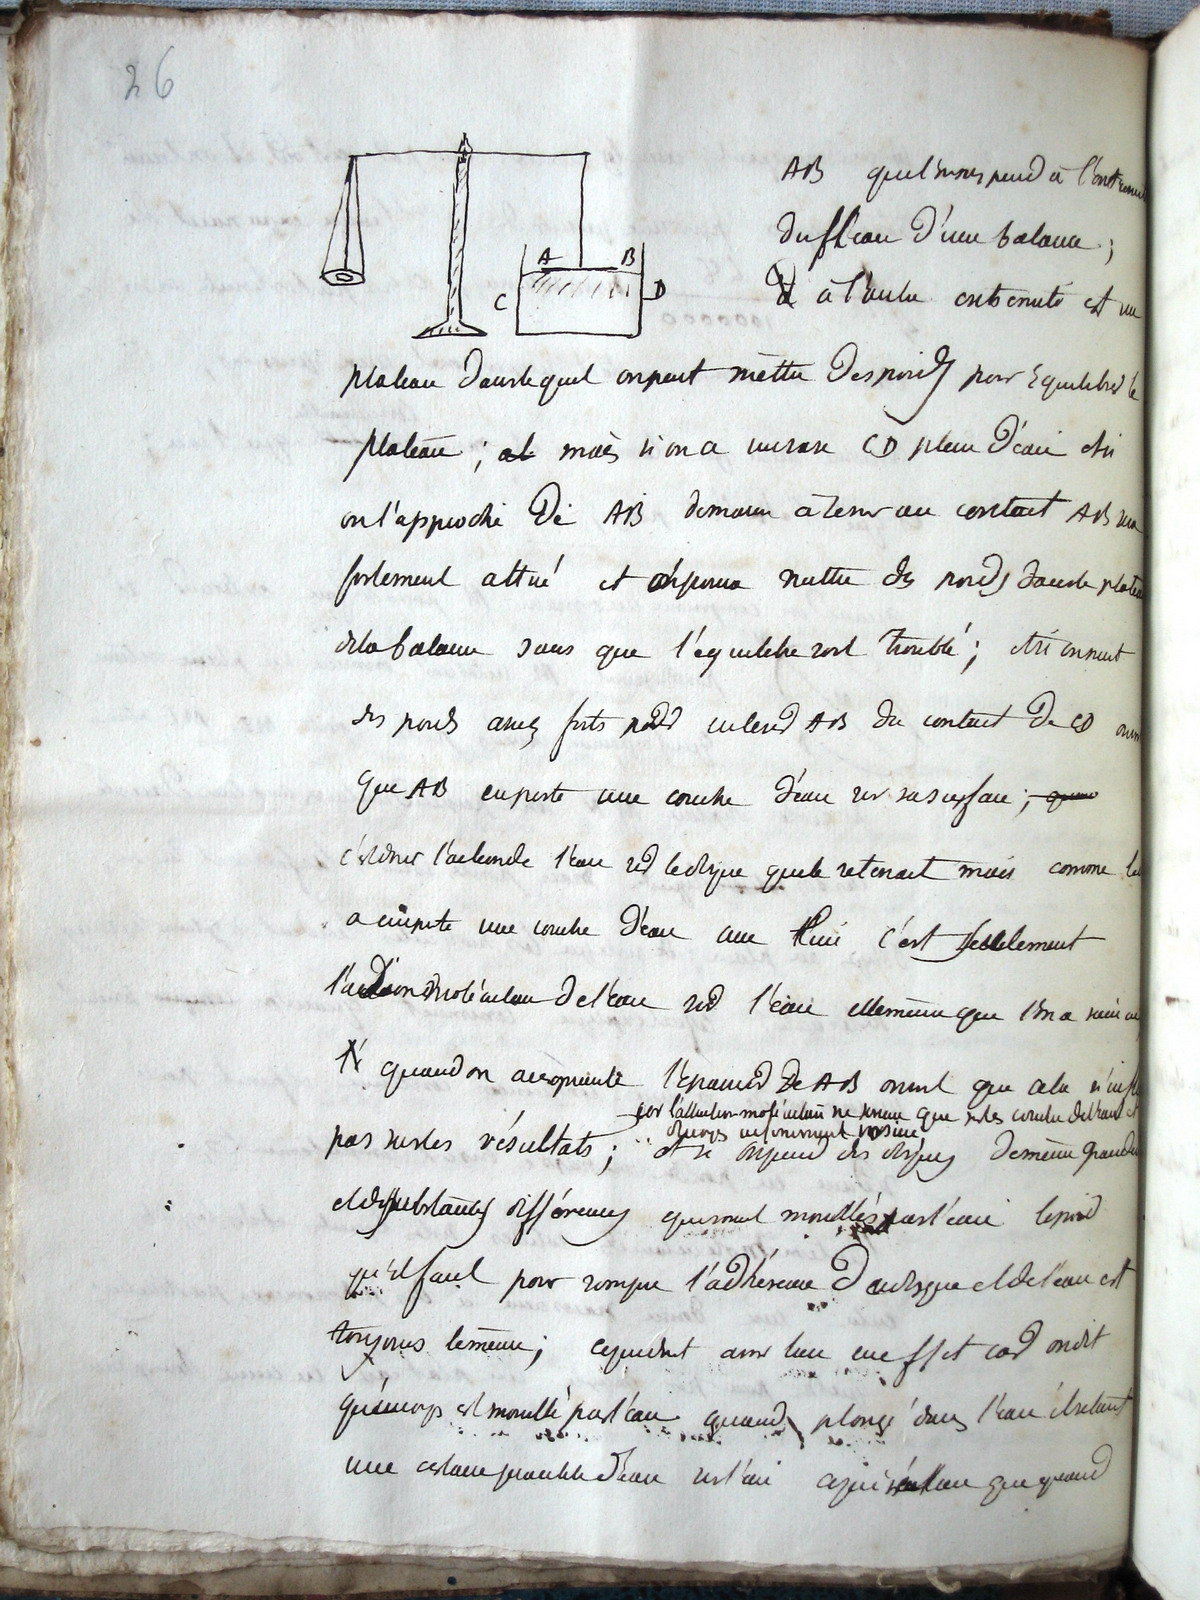 26
A B
C D
AB que l'on suspend à l'extrémité
du fléau d'une balance;
à l'autre extrémité est un
plateau dans lequel on peut mettre des poids pour équilibrer le
plateau; mais si on a un vase CD plein d'eau et si
on l'approche de AB de manière à venir au contact AB sera
fortement attiré et on pourra mettre des poids dans le plateau
de la balance sans que l'équilibre soit troublé; et si on met
des poids assez forts pour enlever AB du contact de CD on voit
que AB emporte une couche d'eau sur sa surface;
c'est donc l'action de l'eau sur le disque qui le retenait mais comme
a emporté une couche d'eau avec lui c'est seulement
l'action moléculaire de l'eau sur l'eau elle même que l'on a
quand on augmente l'épaisseur de AB on voit que cela n'influe
car l'attraction moléculaire ne s'exerce que sur les couches de l'eau et
du corps infiniment voisine,
pas sur les résultats; et si on prend des disques de même grandeur
et de substances différentes qui sont mouillés par l'eau le poid
qu'il faut pour rompre l'adhérence du disque et de l'eau est
toujours le même; cependant avoir lieu en effet car on dit
qu'un corps est mouillé par l'eau quand plongé dans l'eau il retient
une certaine quantité d'eau sur lui que quand